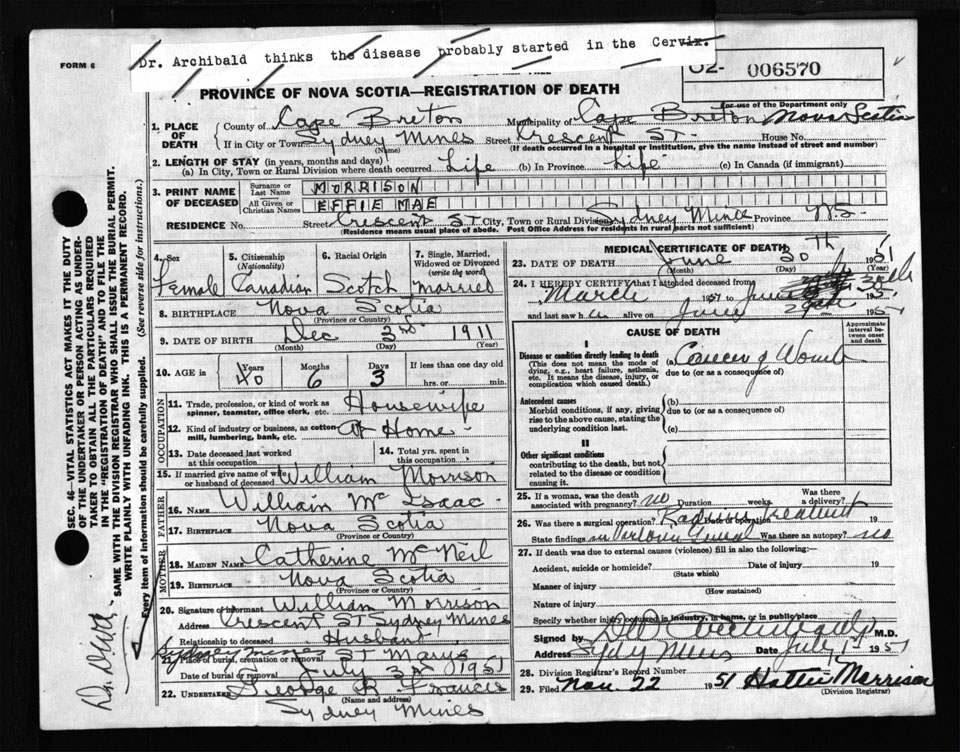 Dr. Archibald thinks the disease probably started in the Cervix.
FORM 6
006570
PROVINCE OF NOVA SCOTIA—REGISTRATION OF DEATH
For use of the Department only
1. PLACE OF DEATH
County of Cape Breton Municipality of Cape Breton Nova Scotia
If in City or Town Sydney Mines Street Crescent ST. House No.
(Name) (If death occurred in a hospital or institution, give the name instead of street and number)
2. LENGTH OF STAY (in years, months and days)
(a) In City, Town or Rural Division where death occurred Life (b) In Province Life (c) In Canada (if immigrant)
3. PRINT NAME OF DECEASED
Surname or Last Name MORRISON
All Given or Christian Names EFFIE MAE
RESIDENCE No. Street Crescent ST City, Town or Rural Division Sydney Mines Province N.S.
(Residence means usual place of abode. Post Office Address for residents in rural parts not sufficient)
4. Sex Female
5. Citizenship (Nationality) Canadian
6. Racial Origin Scotch
7. Single, Married, Widowed or Divorced (write the word) Married
8. BIRTHPLACE Nova Scotia
(Province or Country)
9. DATE OF BIRTH Dec 3rd 1911
(Month) (Day) (Year)
10. AGE in Years 40 Months 6 Days 3 If less than one day old hrs. or min.
OCCUPATION
11. Trade, profession, or kind of work as spinner, teamster, office clerk, etc. Housewife
12. Kind of industry or business, as cotton-mill, lumbering, bank, etc. At Home
13. Date deceased last worked at this occupation
14. Total yrs. spent in this occupation
15. If married give name of wife or husband of deceased William Morrison
FATHER
16. NAME William Mc Isaac
17. BIRTHPLACE Nova Scotia
(Province or Country)
MOTHER
18. MAIDEN NAME Catherine Mc Neil
19. BIRTHPLACE Nova Scotia
(Province or Country)
20. Signature of informant William Morrison
Address Crescent ST Sydney Mines
Relationship to deceased Husband
21. Place of burial, cremation or removal Sydney Mines ST Marys
Date of burial or removal July 3rd 1951
22. UNDERTAKER George R. Francis
(Name and address)
Sydney Mines
MEDICAL CERTIFICATE OF DEATH
23. DATE OF DEATH June 30 th 1951
(Month) (Day) (Year)
24. I HEREBY CERTIFY that I attended deceased from
March 1951 to June 30 1951
and last saw h alive on June 29 1951
CAUSE OF DEATH
Approximate interval between onset and death
I
Disease or condition directly leading to death (a) Cancer of Womb
(This does not mean the mode of dying, e.g., heart failure, asthenia, etc. It means the disease, injury, or complication which caused death.)
due to (or as a consequence of)
Antecedent causes
Morbid conditions, if any, giving rise to the above cause, stating the underlying condition last.
(b)
due to (or as a consequence of)
(c)
II
Other significant conditions
contributing to the death, but not related to the disease or condition causing it.
25. If a woman, was the death associated with pregnancy? no Duration weeks. Was there a delivery?
26. Was there a surgical operation? Radium Treatment Date of operation 19
State findings Was there an autopsy? no
27. If death was due to external causes (violence) fill in also the following:—
Accident, suicide or homicide? Date of injury 19
(State which)
Manner of injury
(How sustained)
Nature of injury
Specify whether injury occurred in industry, in home, or in public place
Signed by M.D.
Address Syd Mines Date July 1951
28. Division Registrar's Record Number
29. Filed Nov. 22 1951 Hattie Morrison
(Division Registrar)
SEC. 46—VITAL STATISTICS ACT MAKES IT THE DUTY
OF THE UNDERTAKER OR PERSON ACTING AS UNDER-
TAKER TO OBTAIN ALL THE PARTICULARS REQUIRED
IN THE "REGISTRATION OF DEATH" AND TO FILE THE
SAME WITH THE DIVISION REGISTRAR WHO SHALL ISSUE THE BURIAL PERMIT.
WRITE PLAINLY WITH UNFADING INK. THIS IS A PERMANENT RECORD.
Every item of information should be carefully supplied. (See reverse side for instructions.)